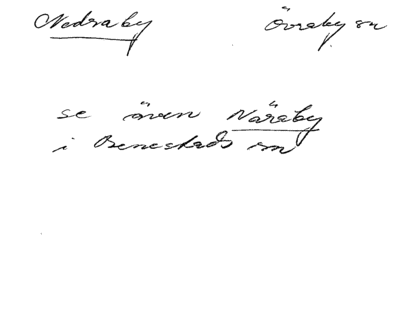 Nedraby Övraby sn
se även Näraby
i Benestads sn